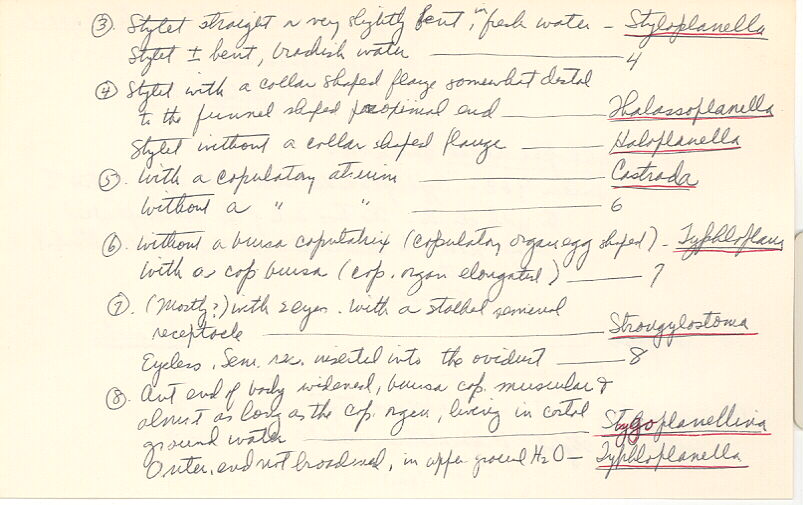 ③ Stylet straight or very slightly bent, in fresh water - Styloplanella
Stylet ± bent, bradish water ——— 4
④ Stylet with a collar shaped flange somewhat distal
to the funnel shaped proximal end ——— Thalassoplanella
Stylet without a collar shaped flange ——— Haloplanella
⑤. With a copulatory atrium ——— Castrada
Without a " " ——— 6
⑥. Without a bursa copulatrix (copulatory organ egg shaped) - Typhloplana
With a cop bursa (cop. organ elongated) ——— 7
⑦. (Mostly?) with 2 eyes. With a stalked seminal
receptacle ——— Strongylostoma
Eyeless. Sem. rec. inserted into the oviduct ——— 8
⑧. Ant end of body widened, bursa cop. muscular &
almost as long as the cop. organ, living in costal
ground water ——— Stygoplanellina
end not broadened, in upper ground H2O - Typhloplanella